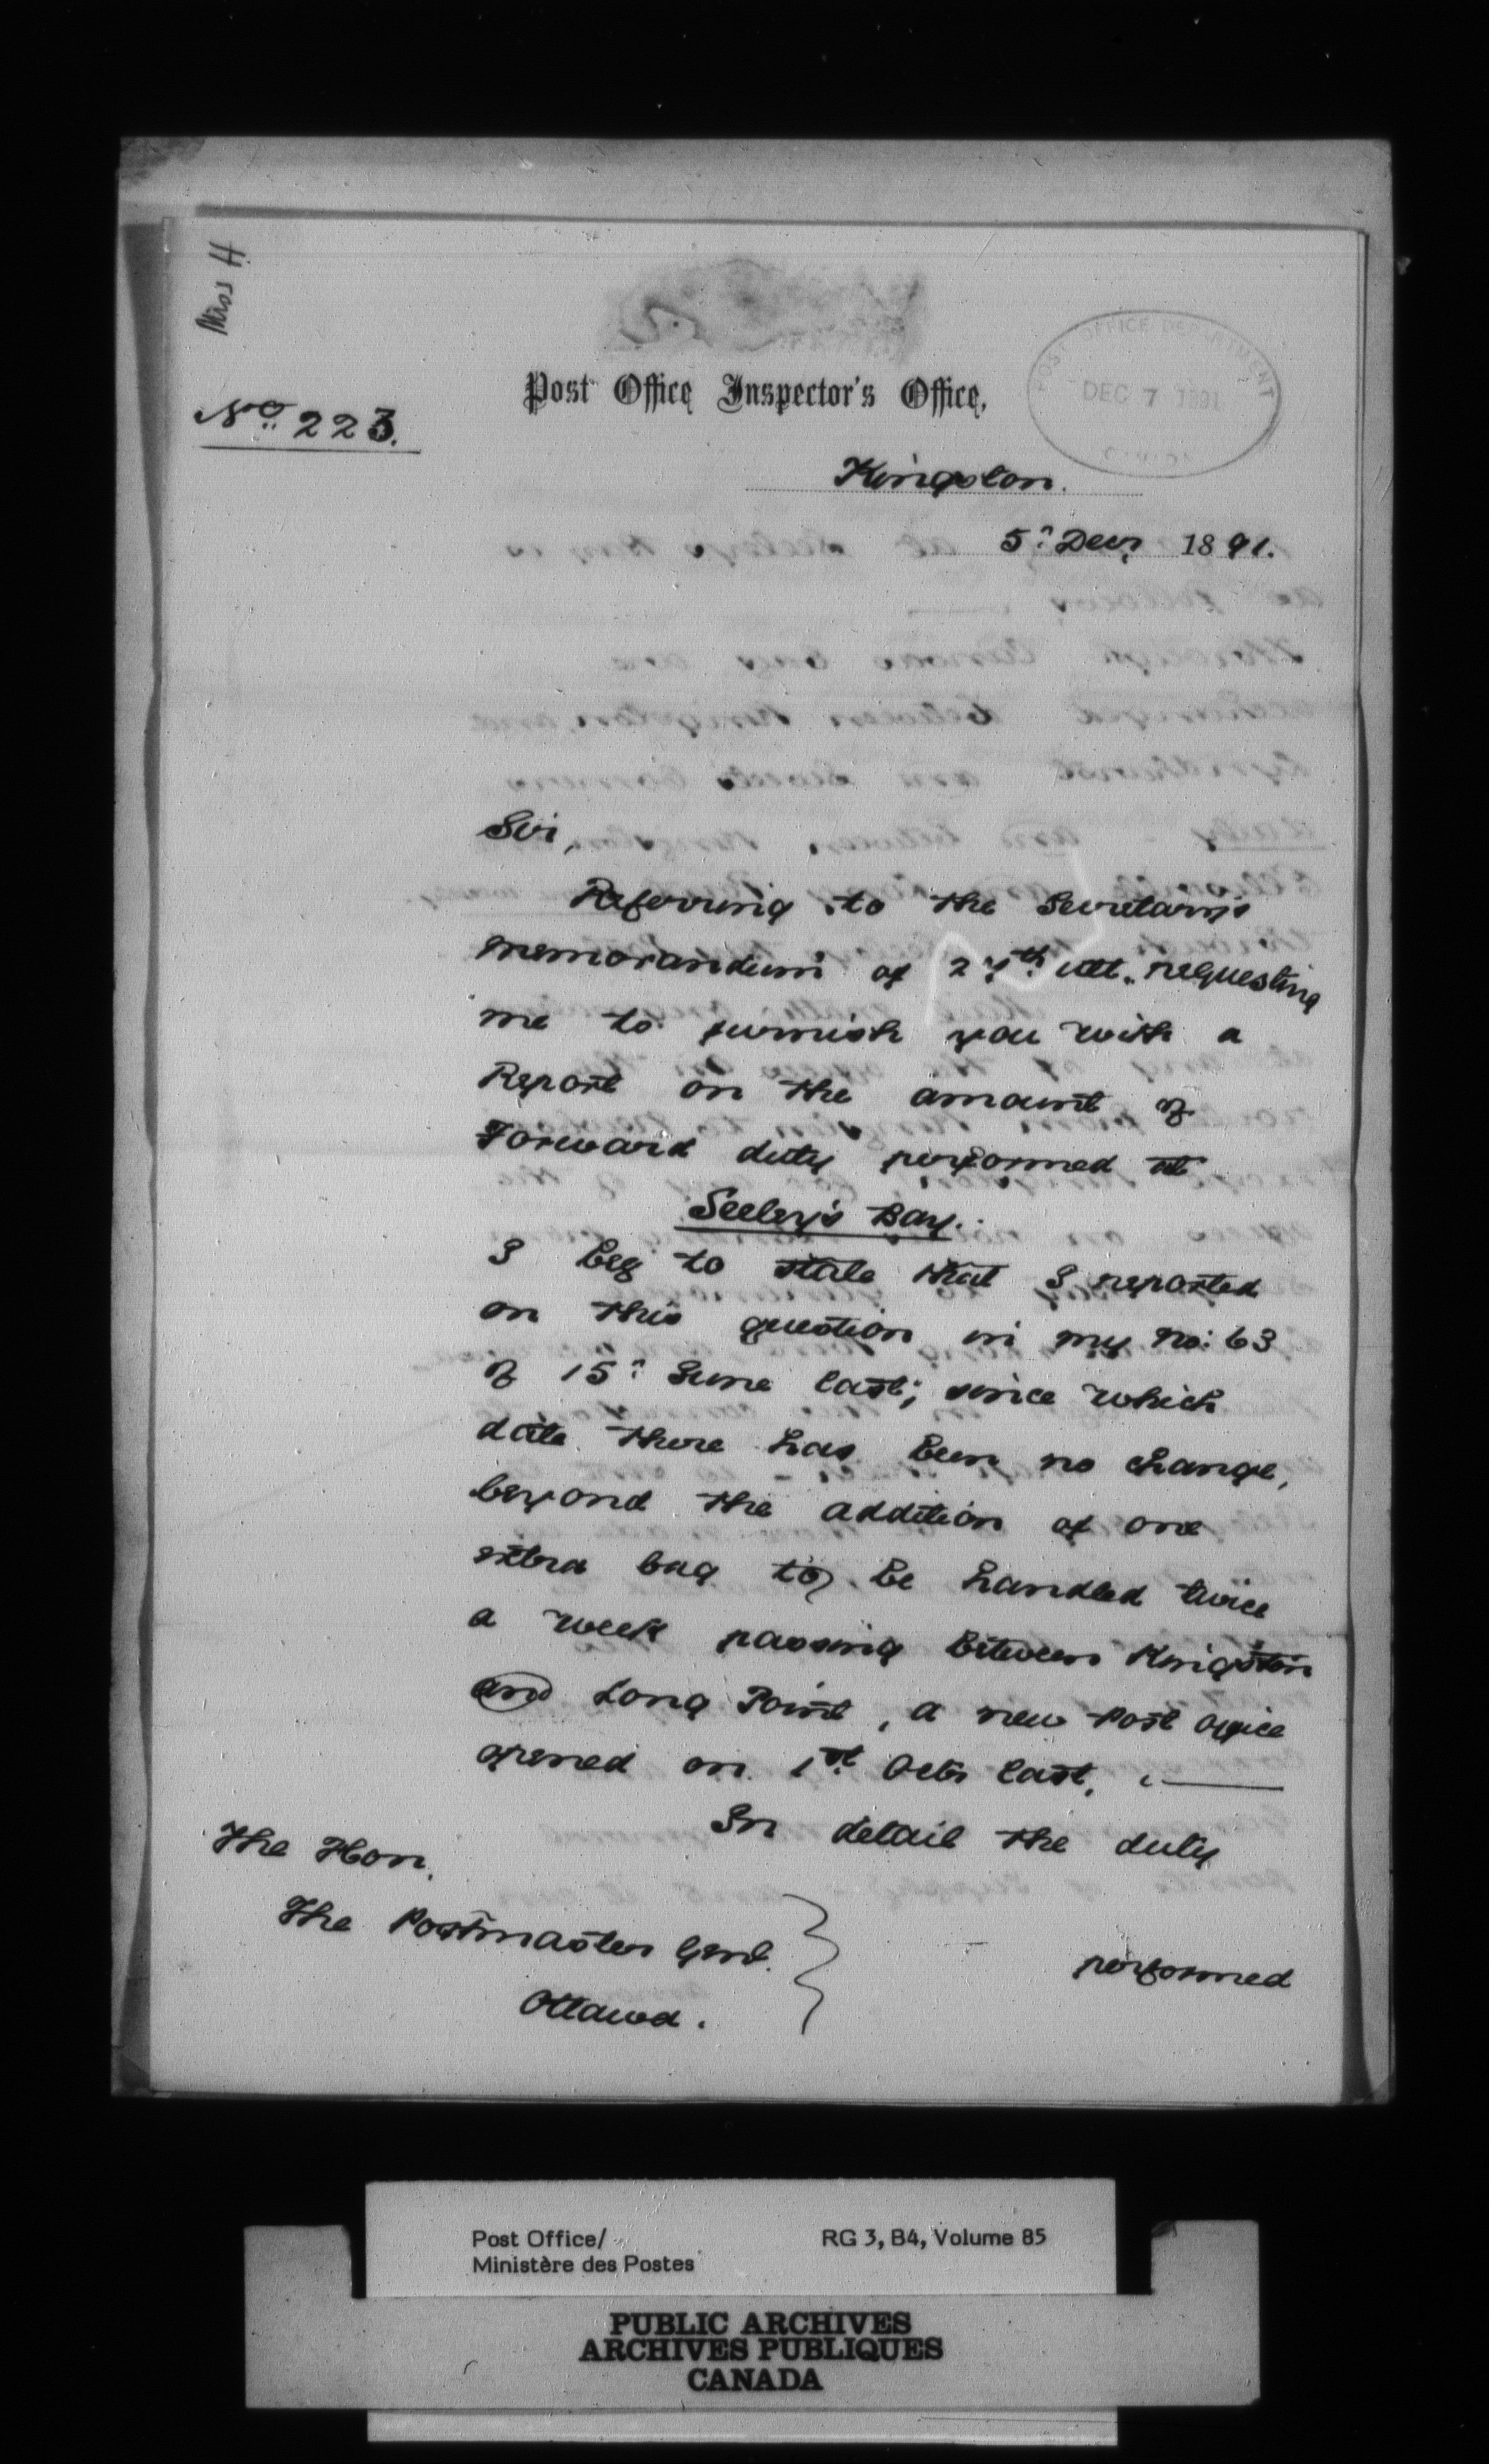 Miss H.
No. 223.
Post Office Inspector's Office,
POST OFFICE DEPARTMENT
DEC 7 1891
CANADA
Kingston.
5th Decr. 1891.
Sir,
Referring to the Secretary's
memorandum of 27th ult. requesting
me to furnish you with a
Report on the amount of
Forward duty performed at
Seeley's Bay.
I beg to state that I reported
on this question in my No: 63
of 15th June last; since which
date there has been no change,
beyond the addition of one
extra bag to be handled twice
a week passing between Kingston
and Long Point, a new Post Office
opened on 1st Octr last.
In detail the duty
The Hon.
The Postmaster Genl.
Ottawa.
performed
Post Office/
Ministère des Postes
RG 3, B4, Volume 85
PUBLIC ARCHIVES
ARCHIVES PUBLIQUES
CANADA